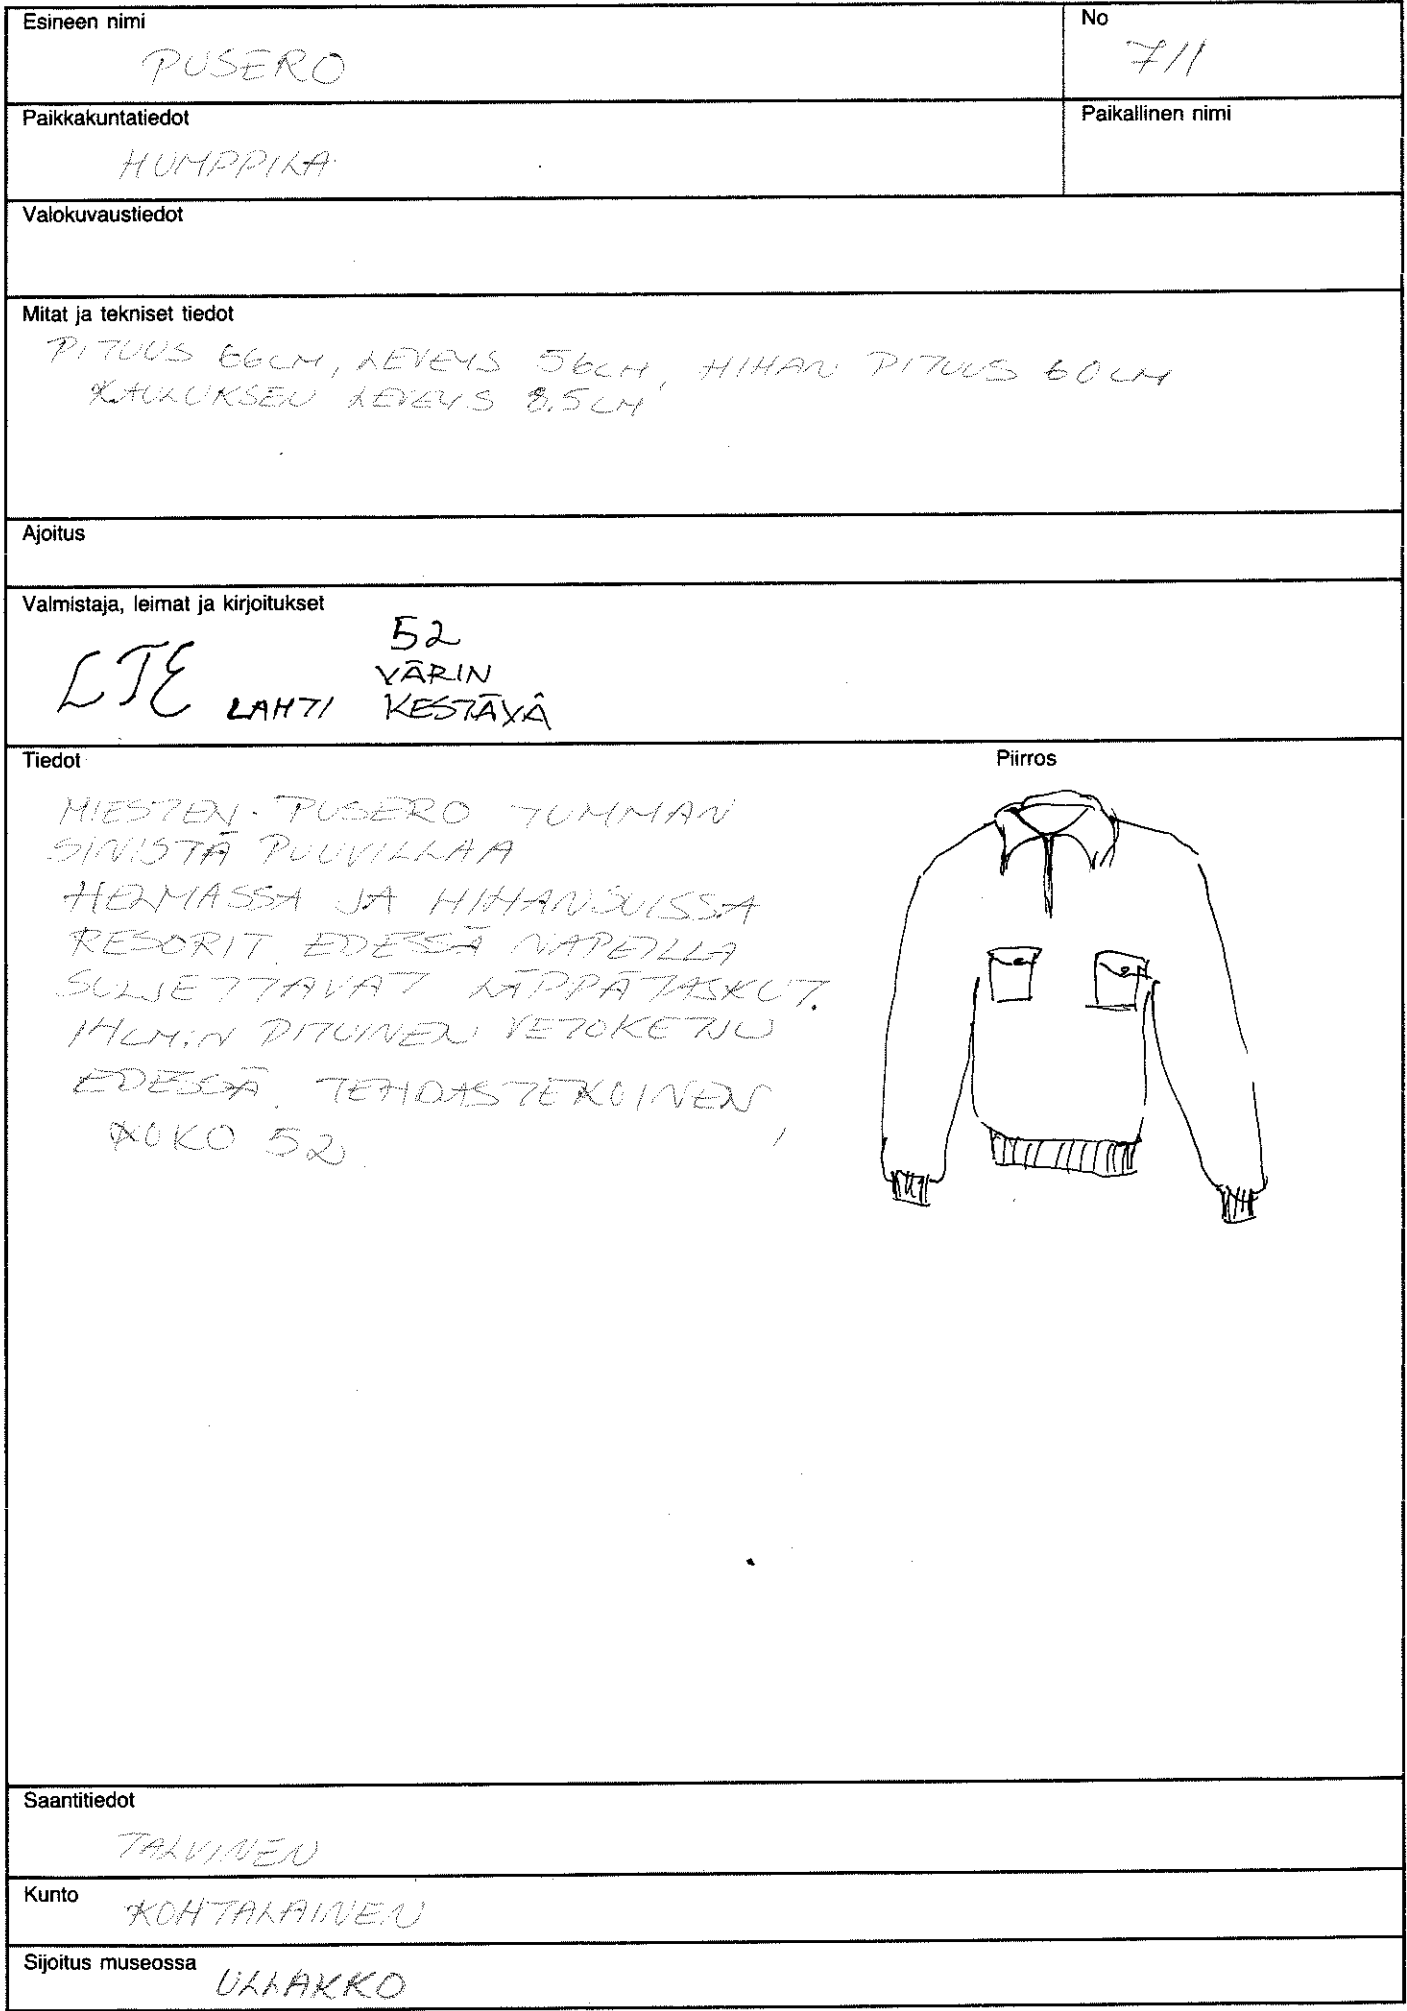 Esineen nimi
PUSERO
No
711
Paikkakuntatiedot
HUMPPILA
Paikallinen nimi
Valokuvaustiedot
Mitat ja tekniset tiedot
PITUUS 66CM, LEVEYS 56CM, HIHAN PITUUS 60CM
KAULUKSEN LEVEYS 8.5CM
Ajoitus
Valmistaja, leimat ja kirjoitukset
LTE LAHTI
52
VÄRIN
KESTÄVÄ
Tiedot
Piirros
MIESTEN PUSERO TUMMAN
SINISTÄ PUUVILLAA
HELMASSA JA HIHANSUISSA
RESORIT. EDESSÄ NAPEILLA
SULJETTAVAT LÄPPÄTASKUT.
14CM:N PITUINEN VETOKETJU
EDESSÄ. TEHDASTEKOINEN,
KOKO 52.
Saantitiedot
TALVINEN
Kunto
KOHTALAINEN
Sijoitus museossa
ULLAKKO